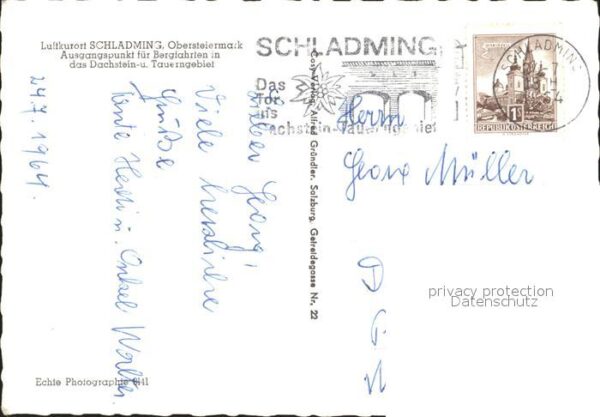 Luftkurort SCHLADMING, Obersteiermark
Ausgangspunkt für Bergfahrten in
das Dachstein-u. Tauerngebiet
SCHLADMING
Das
Tor
ins
Dachstein-Tauerngebiet
SCHLADMING
1S
REPUBLIK ÖSTERREICH
24.7.1964.
Lieber Georg,
Viele herzliche
Grüße
Tante Herti u. Onkel Walter
Cosy-Verlag Alfred Gründler, Salzburg, Getreidegasse Nr. 22
Herrn
Georg Müller
privacy protection
Datenschutz
Echte Photographie